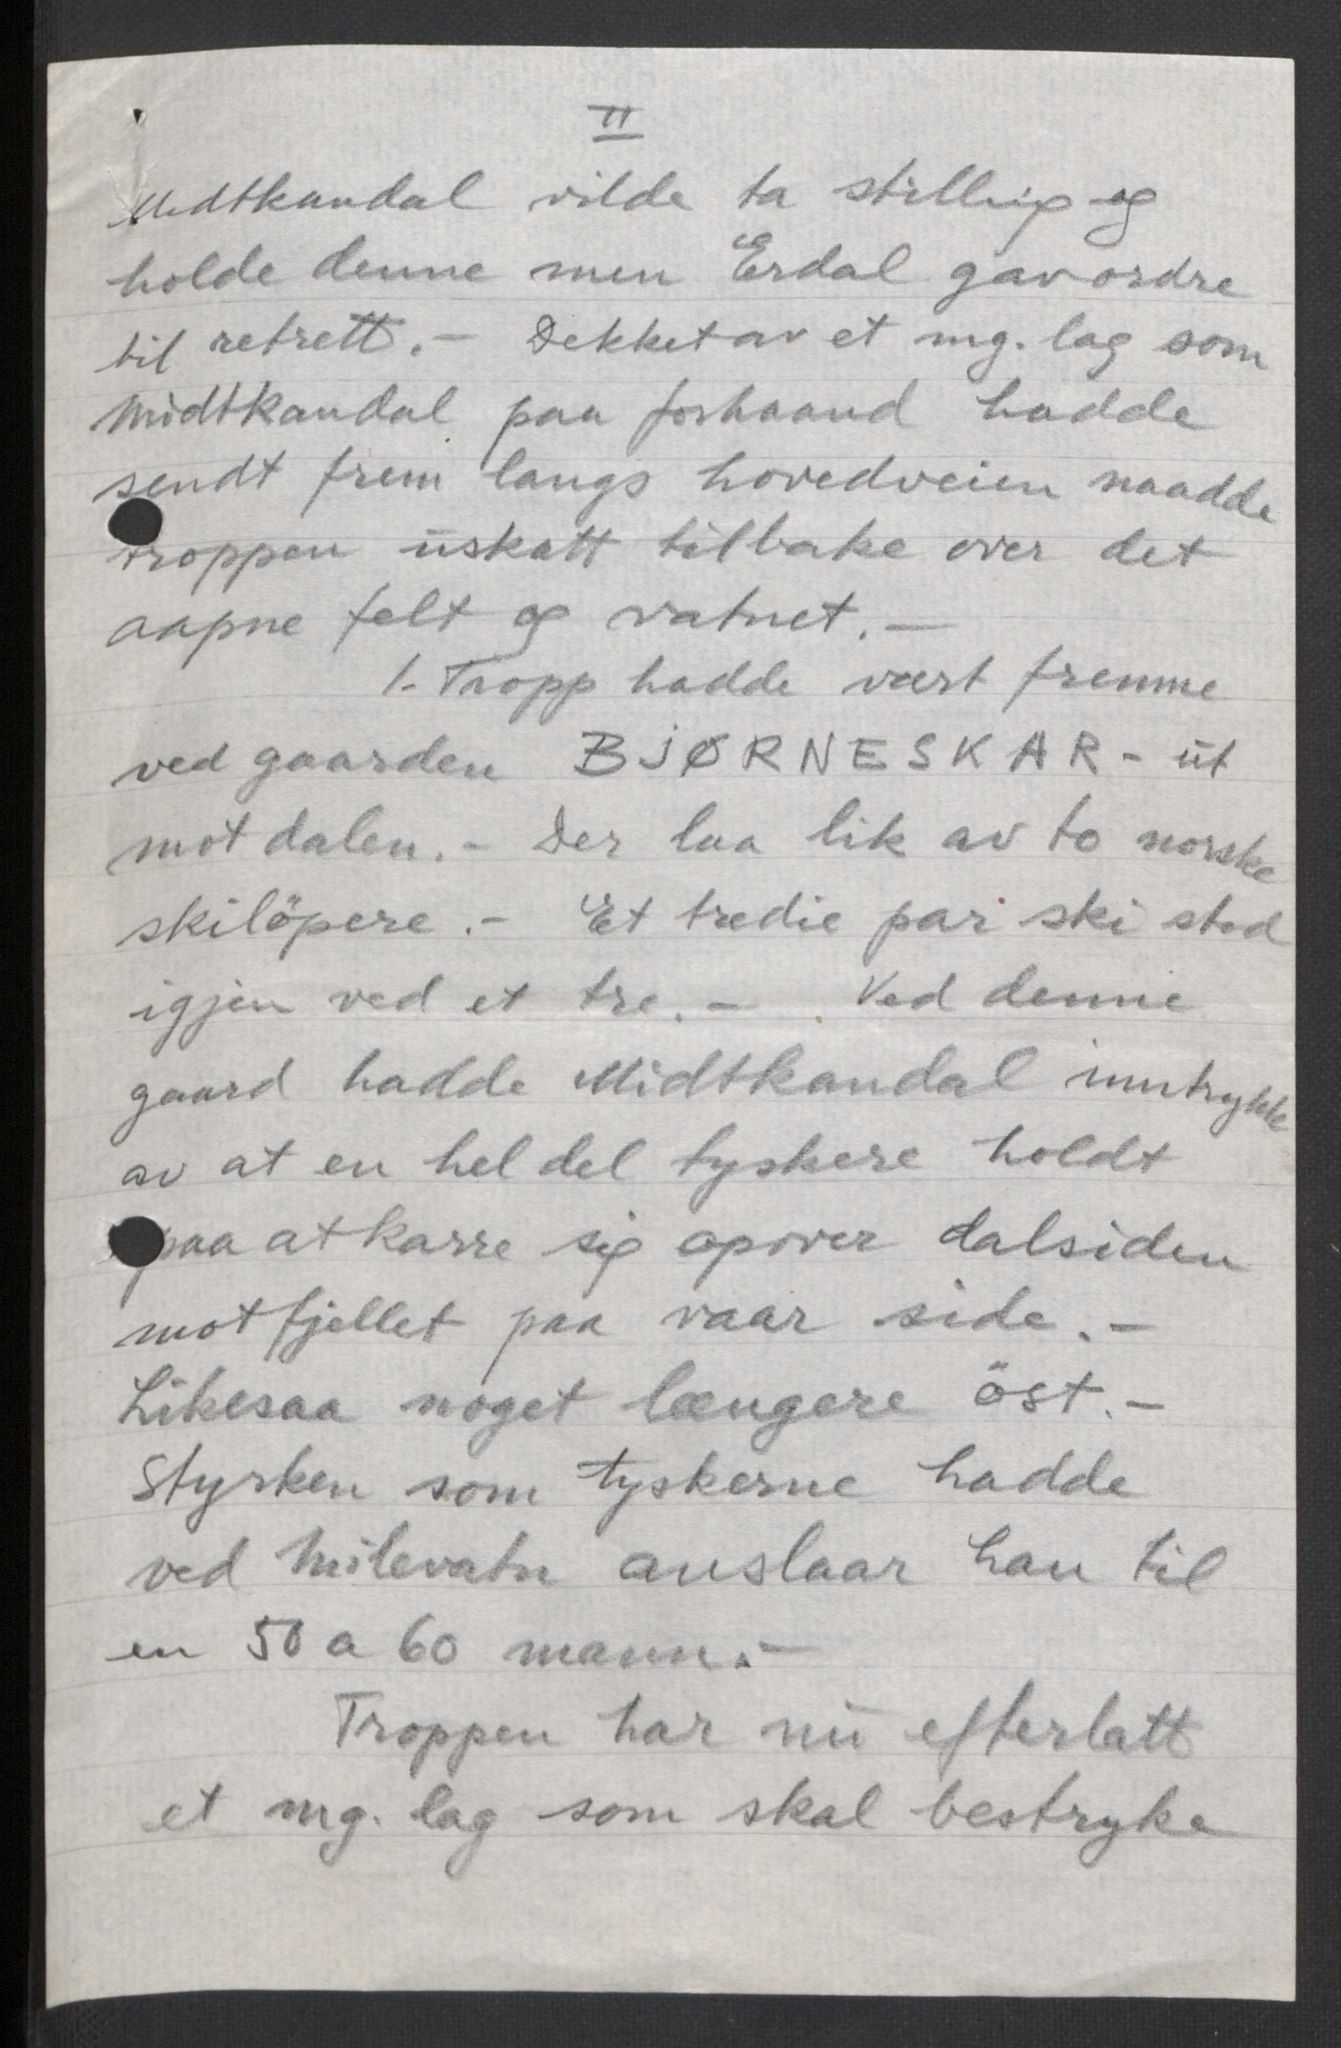 II
Midtkandal vilde ta stilling og
holde denne men Erdal gav ordre
til retrett. – Dekket av et mg. lag som
Midtkandal paa forhaand hadde
sendt frem langs hovedveien naadde
troppen uskatt tilbake over det
aapne felt og vatnet. –
1. Tropp hadde vært fremme
ved gaarden BJØRNESKAR – ut
mot dalen. – Der laa lik av to norske
skilöpere. – Et tredie par ski stod
igjen ved et tre. – Ved denne
gaard hadde Midtkandal inntrykk
av at en hel del tyskere holdt
paa at karre sig opover dalsiden
mot fjellet paa vaar side. –
Likesaa noget længere öst. –
Styrken som tyskerne hadde
ved Milevatn anslaar han til
en 50 a 60 mann. –
Troppen har nu efterlatt
et mg. lag som skal bestryke